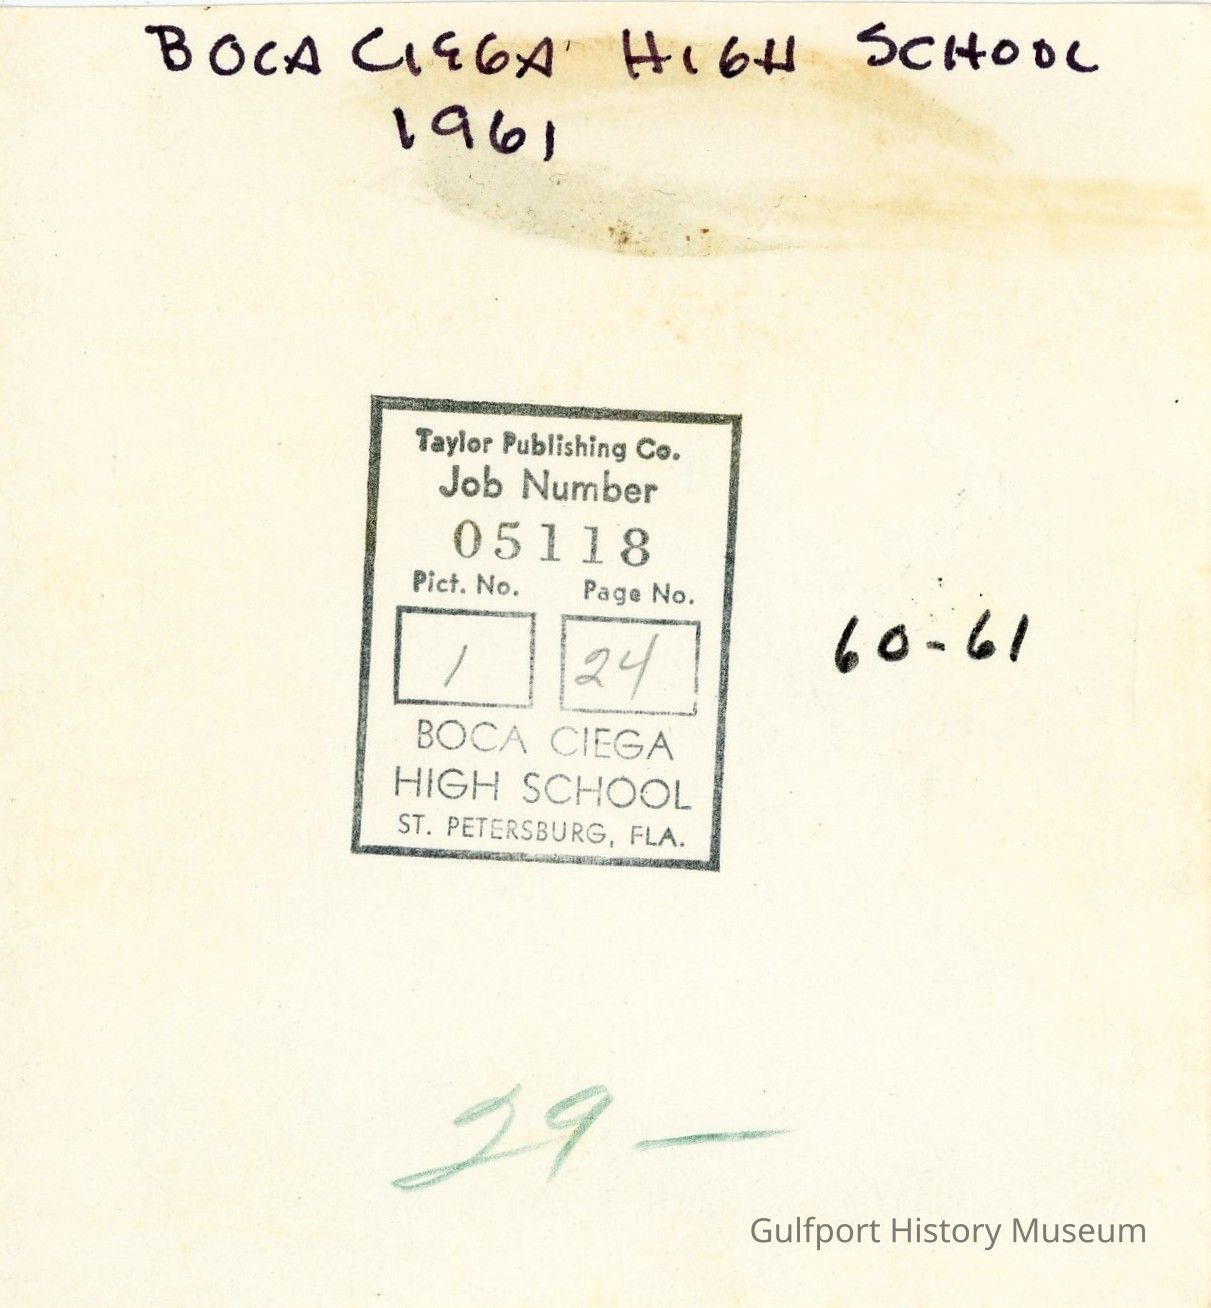 BOCA CIEGA HIGH SCHOOL
1961
Taylor Publishing Co.
Job Number
05118
Pict. No. Page No.
1 24
BOCA CIEGA
HIGH SCHOOL
ST. PETERSBURG, FLA.
60-61
29 —
Gulfport History Museum